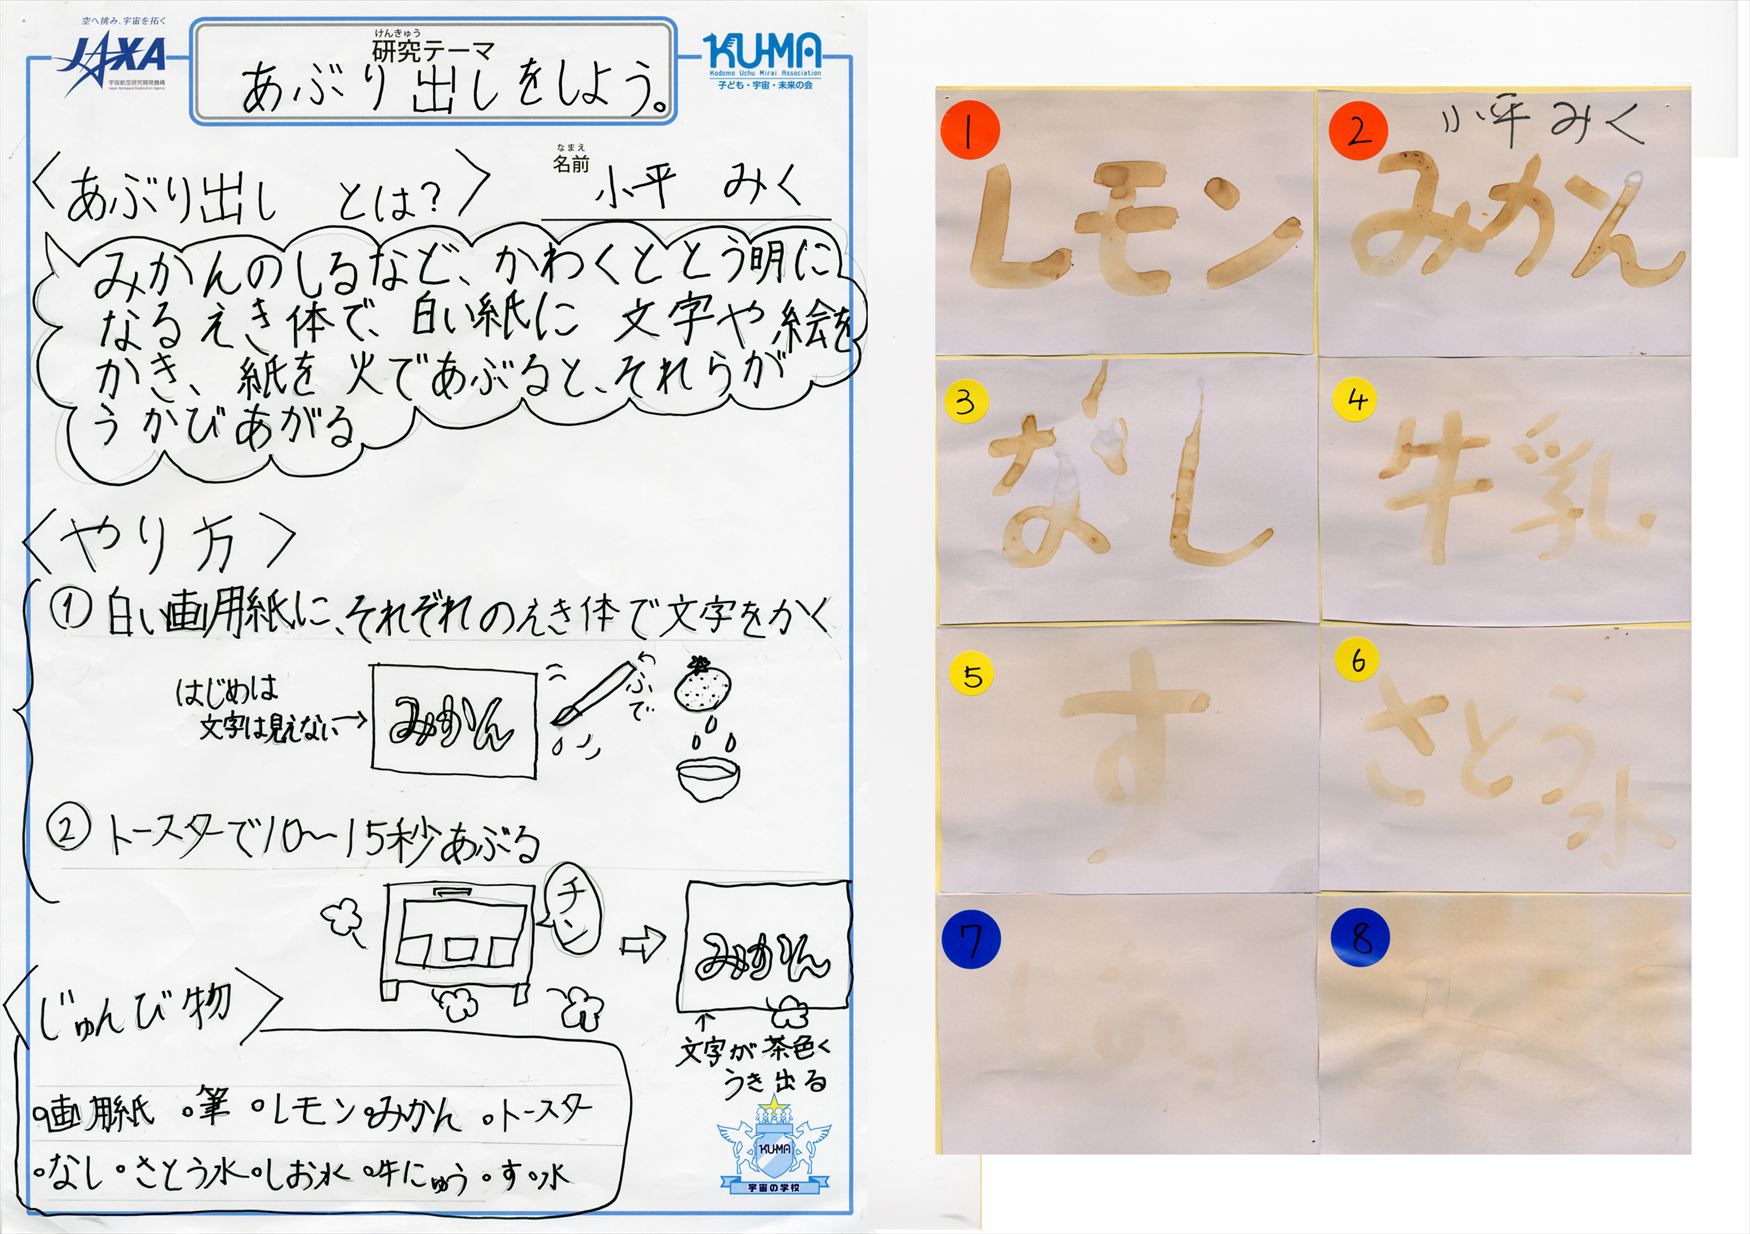 空へ挑み、宇宙を拓く
JAXA
宇宙航空研究開発機構
Japan Aerospace Exploration Agency
けんきゅう
研究テーマ
あぶり出しをしよう。
KUMA
Kodomo Uchu Mirai Association
子ども・宇宙・未来の会
なまえ
名前
小平 みく
〈あぶり出し とは?〉
みかんのしるなど、かわくととう明に
なるえき体で、白い紙に 文字や絵を
かき、紙を火であぶると、それらが
うかびあがる
〈やり方〉
①白い画用紙に、それぞれのえき体で文字をかく
はじめは
文字は見えない→
みかん
ふで
②トースターで10〜15秒あぶる
チン
みかん
文字が茶色く
うき出る
〈じゅんび物〉
・画用紙 ・筆 ・レモン・みかん ・トースター
・なし・さとう水・しお水 ・牛にゅう・す・水
KU-MA
宇宙の学校
1
レモン
2
小平 みく
みかん
3
なし
4
牛乳
5
す
6
さとう水
7
8